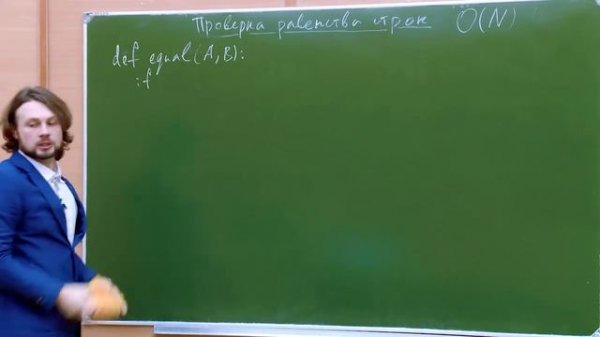 Проверка равенства строк O(N)
def equal(A,B):
if